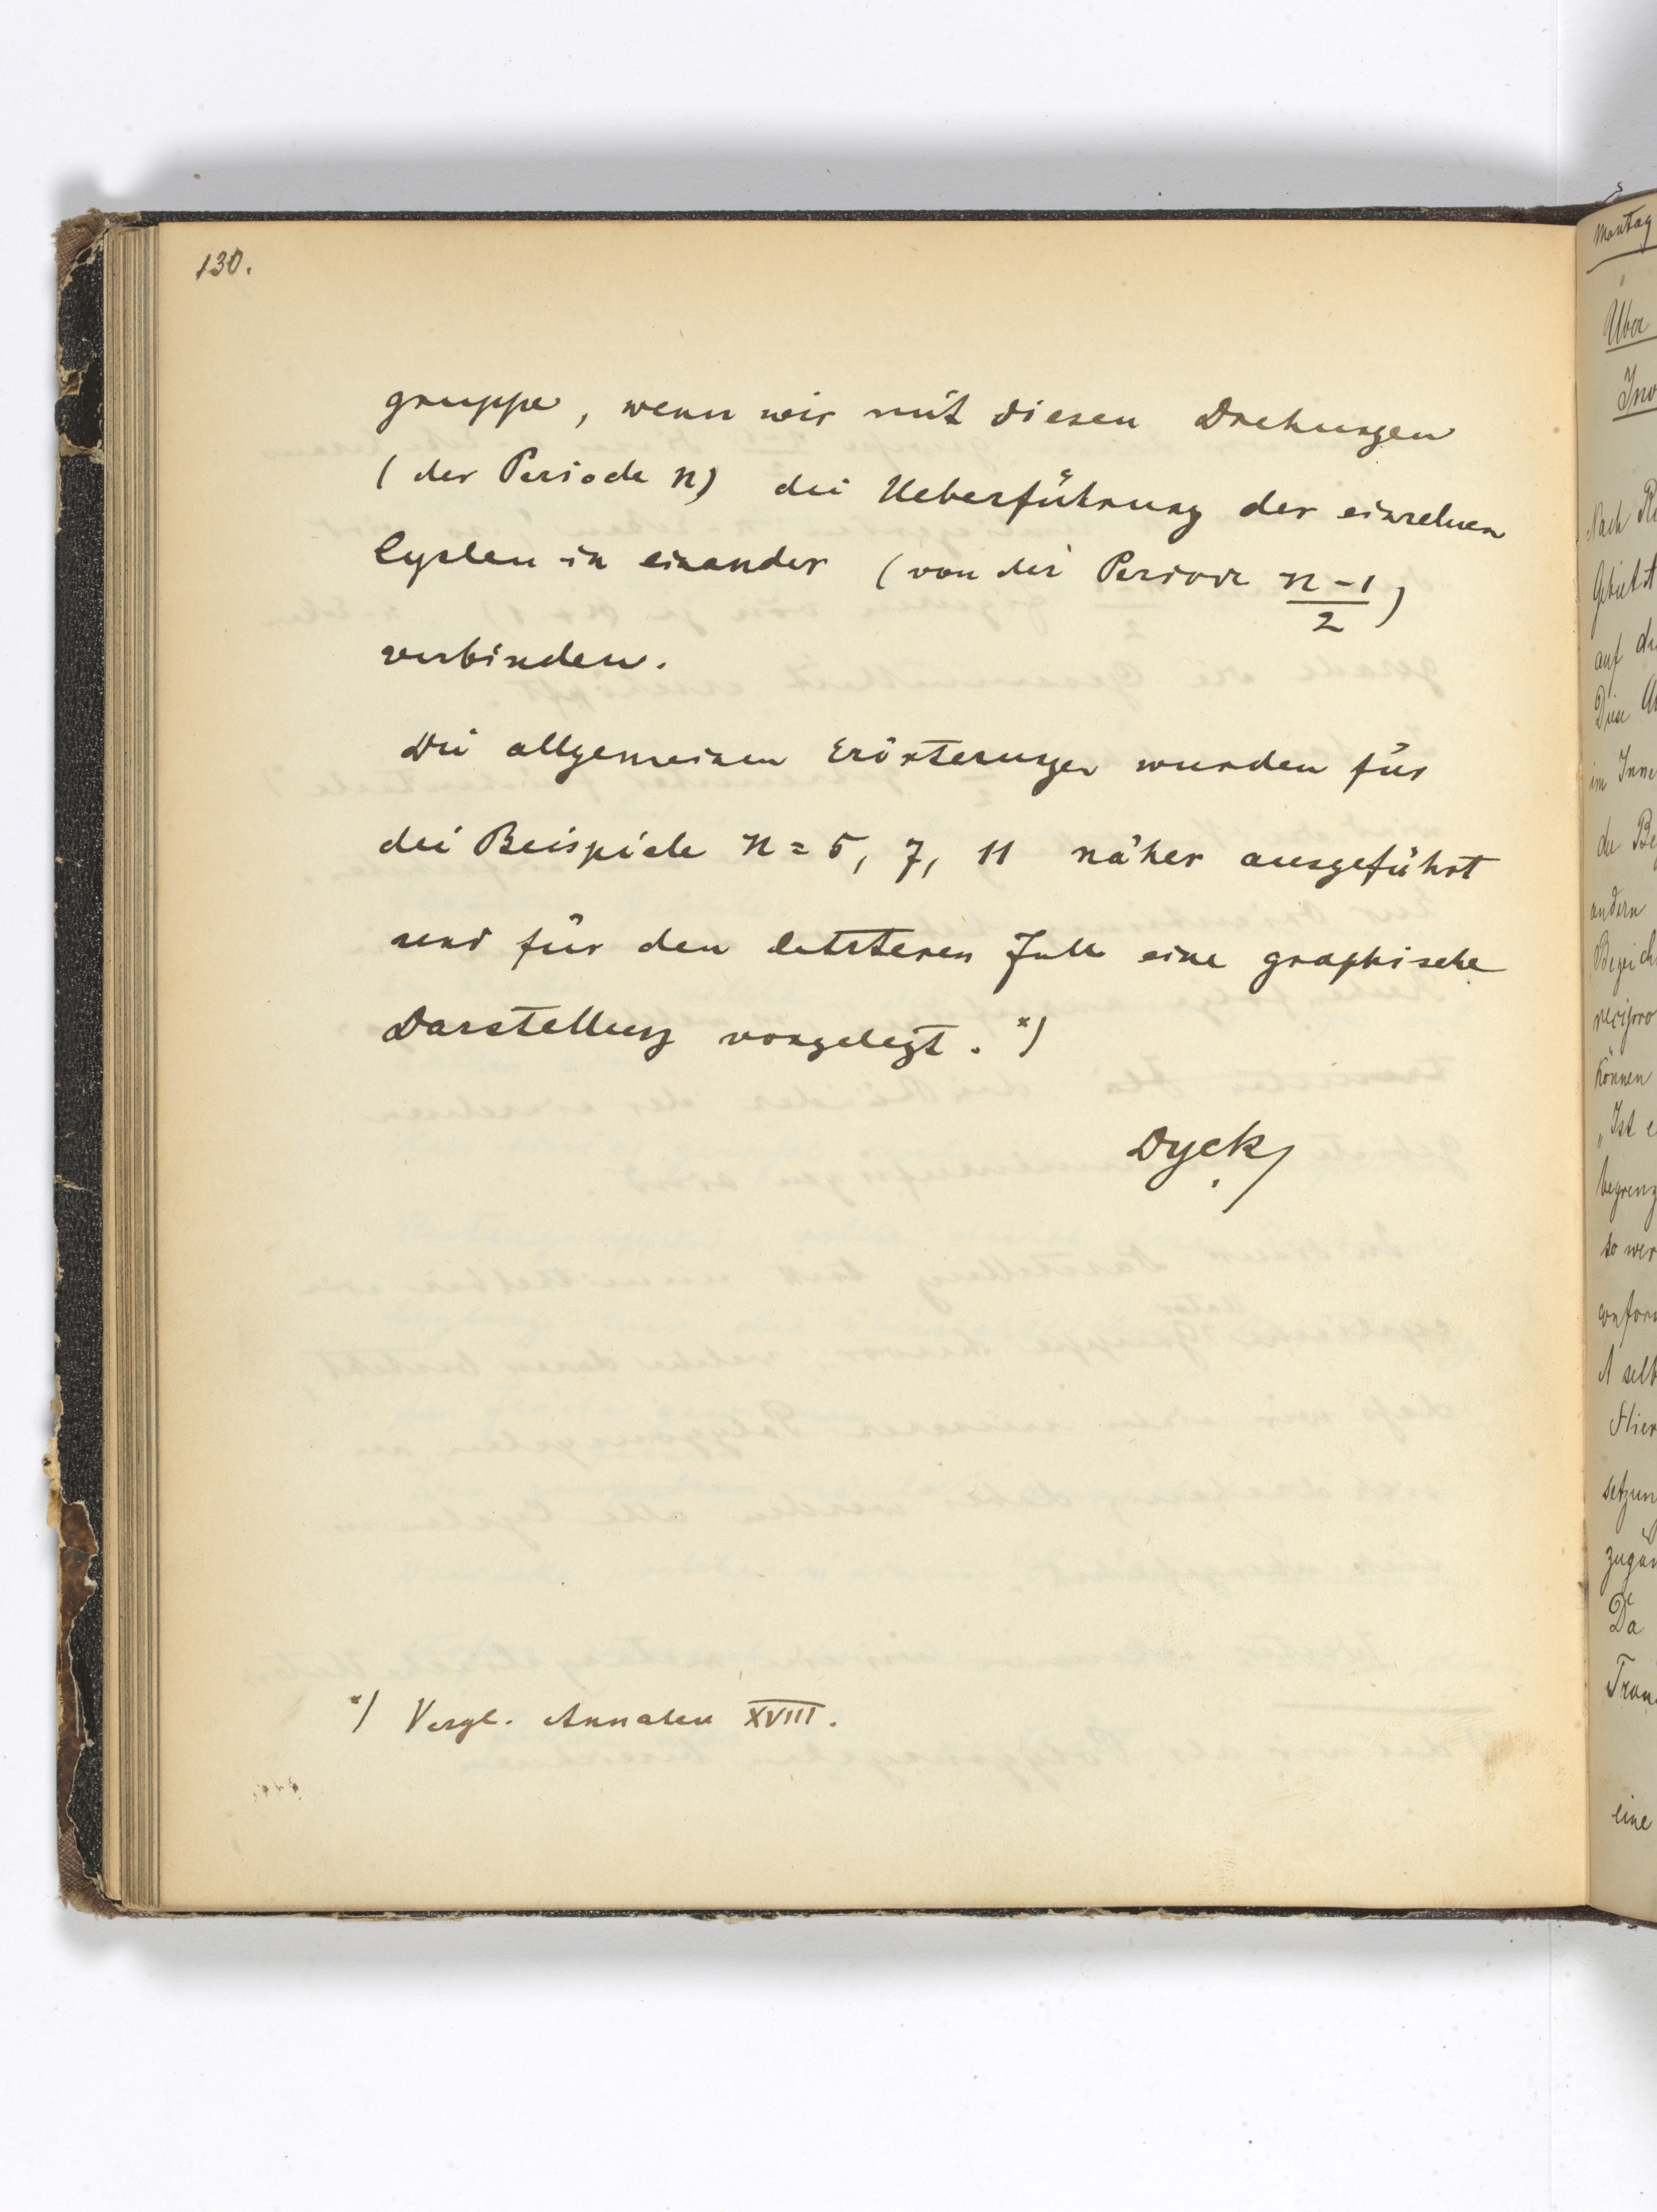 130.
gruppe, wenn wir mit diesen Drehungen
(der Periode n) die Ueberführung der einzelnen
Cyclen in einander (von der Periode n-1/2)
verbinden.
Die allgemeinen Erörterungen wurden für
die Beispiele n = 5, 7, 11 näher ausgeführt
und für den letzteren Fall eine graphische
Darstellung vorgelegt. *)
Dyck
*) Vergl. Annalen XVIII.
Montag
Über
Nach
Gebiet
auf
Diese
im Inne
der Be
andern
recipro
können
„Ist e
begrenz
so wer
conform
A selb
Hier
setzun
Da
Tran
eine